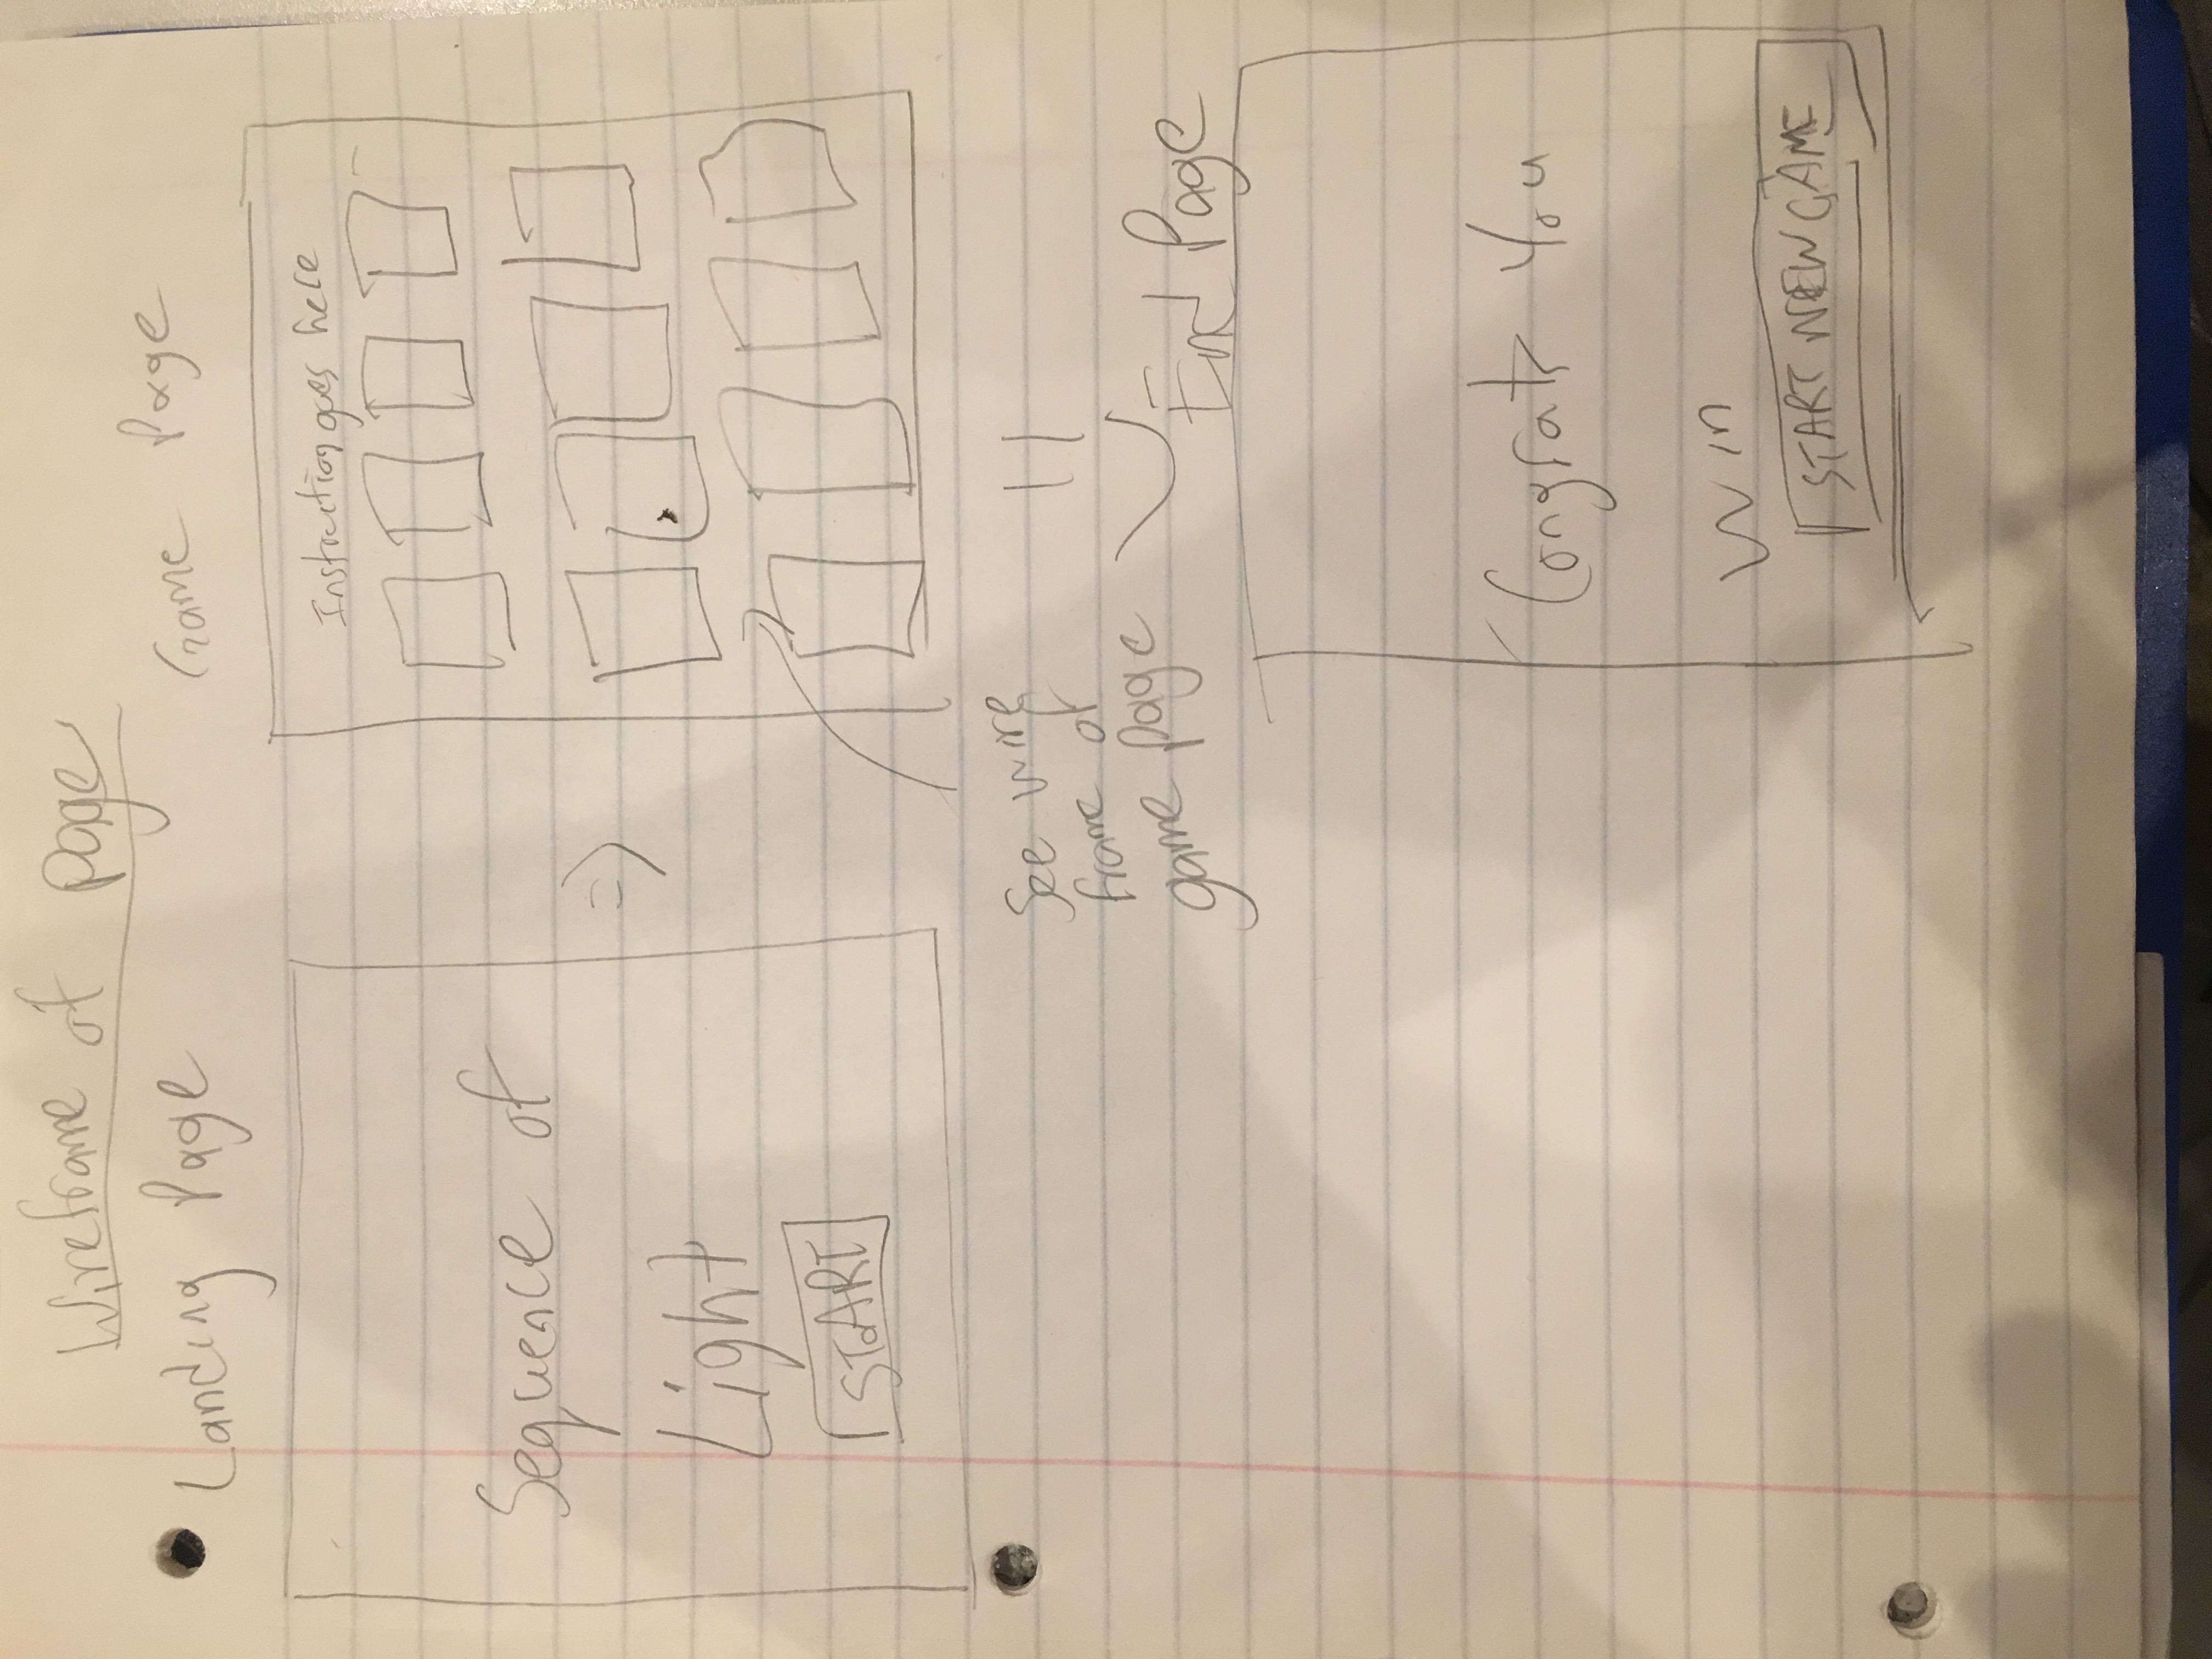 Wireframe of page
Landing Page
Sequence of
Light
START
Game Page
Instruction goes here
See wire
frame of
game page
End Page
Congrats You
Win
START NEW GAME